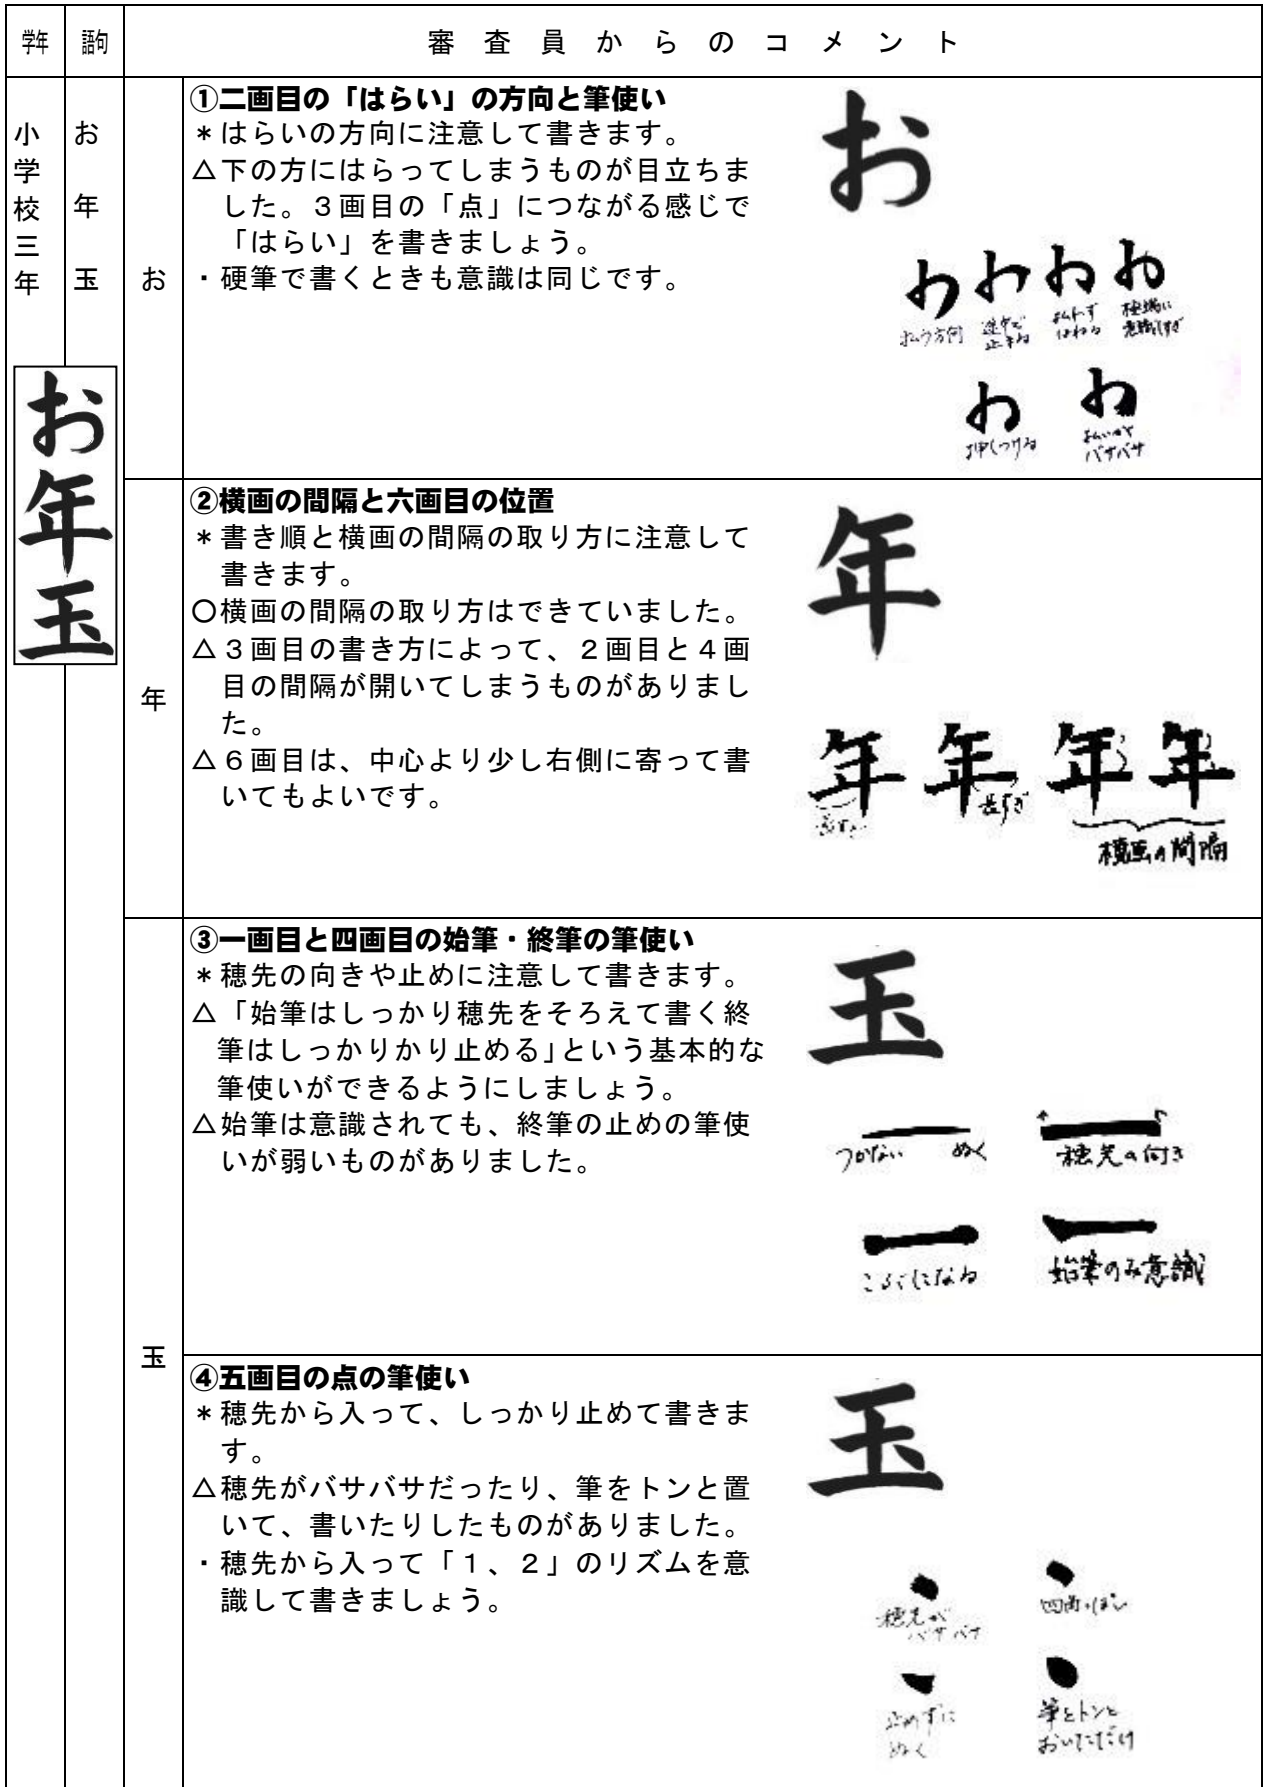 学年 語句 審査員からのコメント
小学校三年
お年玉
お年玉
お
①二画目の「はらい」の方向と筆使い
＊はらいの方向に注意して書きます。
△下の方にはらってしまうものが目立ちま
した。３画目の「点」につながる感じで
「はらい」を書きましょう。
・硬筆で書くときも意識は同じです。
お
払う方向
途中で
止まる
払わず
はねる
極端に
意識しすぎ
押しつける
はらいが
バサバサ
年
②横画の間隔と六画目の位置
＊書き順と横画の間隔の取り方に注意して
書きます。
〇横画の間隔の取り方はできていました。
△３画目の書き方によって、２画目と４画
目の間隔が開いてしまうものがありまし
た。
△６画目は、中心より少し右側に寄って書
いてもよいです。
年
年 年 年 年
長すぎ
横画の間隔
玉
③一画目と四画目の始筆・終筆の筆使い
＊穂先の向きや止めに注意して書きます。
△「始筆はしっかり穂先をそろえて書く終
筆はしっかりかり止める」という基本的な
筆使いができるようにしましょう。
△始筆は意識されても、終筆の止めの筆使
いが弱いものがありました。
玉
つかない ぬく
穂先の向き
こぶになる
始筆のみ意識
④五画目の点の筆使い
＊穂先から入って、しっかり止めて書きま
す。
△穂先がバサバサだったり、筆をトンと置
いて、書いたりしたものがありました。
・穂先から入って「１、２」のリズムを意
識して書きましょう。
玉
穂先が
バサバサ
四角っぽい
止めずに
ぬく
筆をトンと
おいただけ